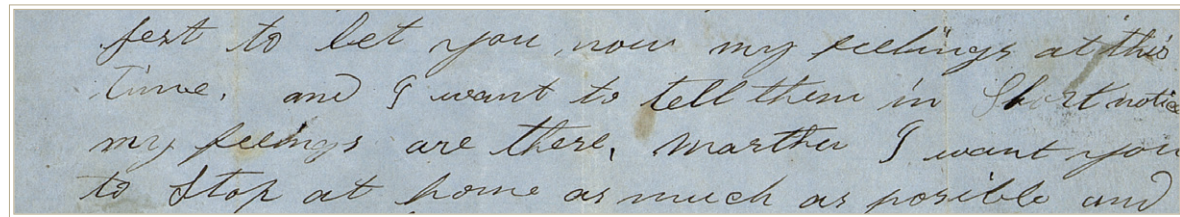 fest to let you now my feelings at this
Time. and I want to tell them in Short notice
my feelings are there, Marther I want you
to Stop at home as much as posible and